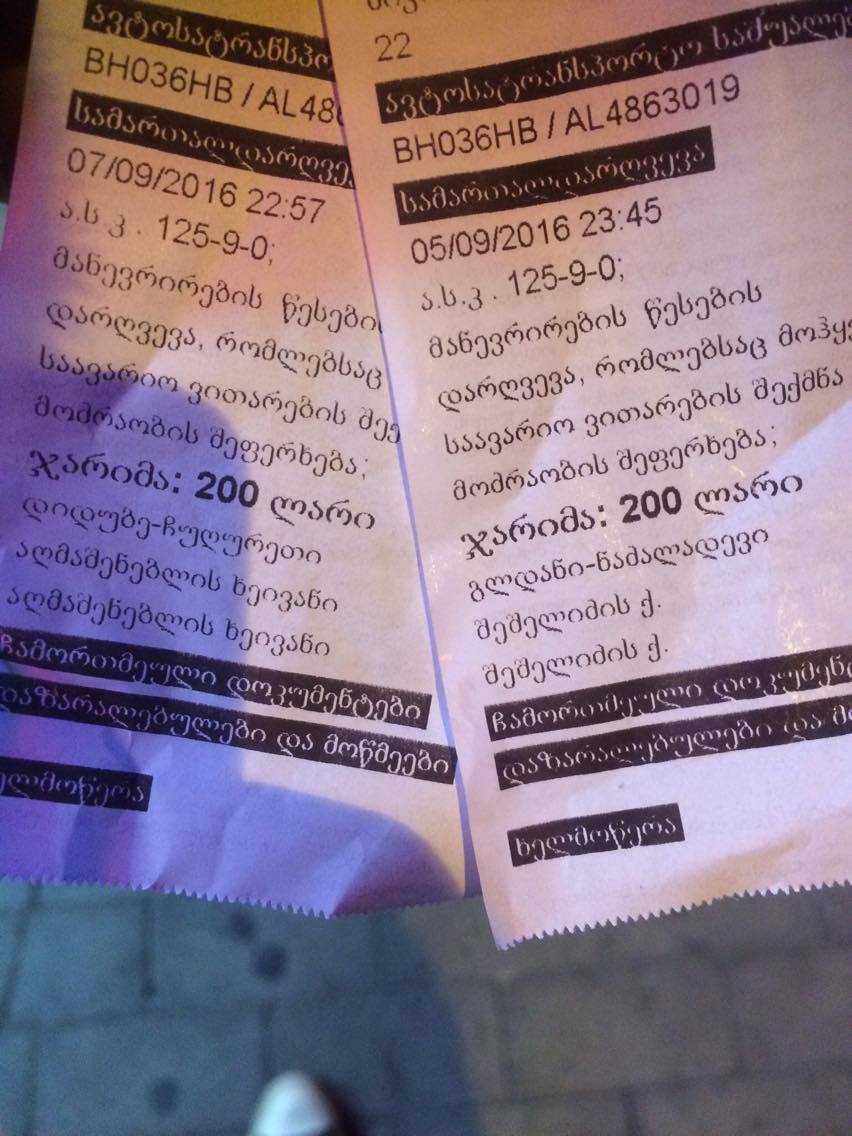 ავტოსატრანსპო
BH036HB / AL48
სამართალდარღვევ
07/09/2016 22:57
ა.ს.კ . 125-9-0;
მანევრირების წესების
დარღვევა, რომლებსაც
საავარიო ვითარების შექ
მოძრაობის შეფერხება;
ჯარიმა: 200 ლარი
დიდუბე-ჩუღურეთი
აღმაშენებლის ხეივანი
აღმაშენებლის ხეივანი
ჩამორთმეული დოკუმენტები
დაზარალებულები და მოწმეები
ელმოწერა
22
ავტოსატრანსპორტო საშუალებ
BH036HB / AL4863019
სამართალდარღვევა
05/09/2016 23:45
ა.ს.კ . 125-9-0;
მანევრირების წესების
დარღვევა, რომლებსაც მოჰყვ
საავარიო ვითარების შექმნა
მოძრაობის შეფერხება;
ჯარიმა: 200 ლარი
გლდანი-ნაძალადევი
შეშელიძის ქ.
შეშელიძის ქ.
ჩამორთმეული დოკუმენ
დაზარალებულები და მო
ხელმოწერა